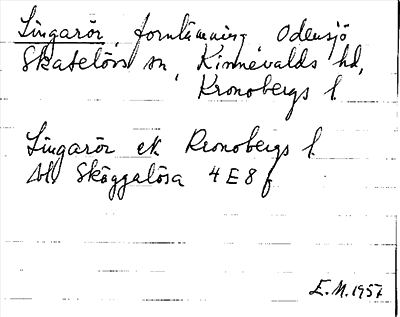 Lingarör, fornlämning, Odensjö
Skatelövs sn, Kinnevalds hd,
Kronobergs l.
Lingarör ek Kronobergs l
bl. Skäggalösa 4E8f
E.M.1957